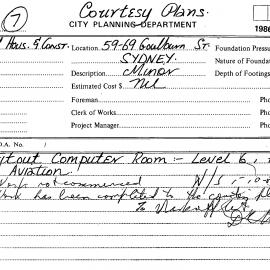 7
Courtesy Plans.
CITY PLANNING DEPARTMENT
1986
Hous. & Const. Location 59-69 Goulburn St. Foundation Pressu
SYDNEY. Nature of Founda
Description Minor Depth of Footings
Estimated Cost $ Nil
Foreman Pho
Clerk of Works Pho
Project Manager Pho
D.A. No.
Fitout Computer Room :- Level 6,
Aviation.
Work not commenced N/S 1-10-
Work has been completed to the
To